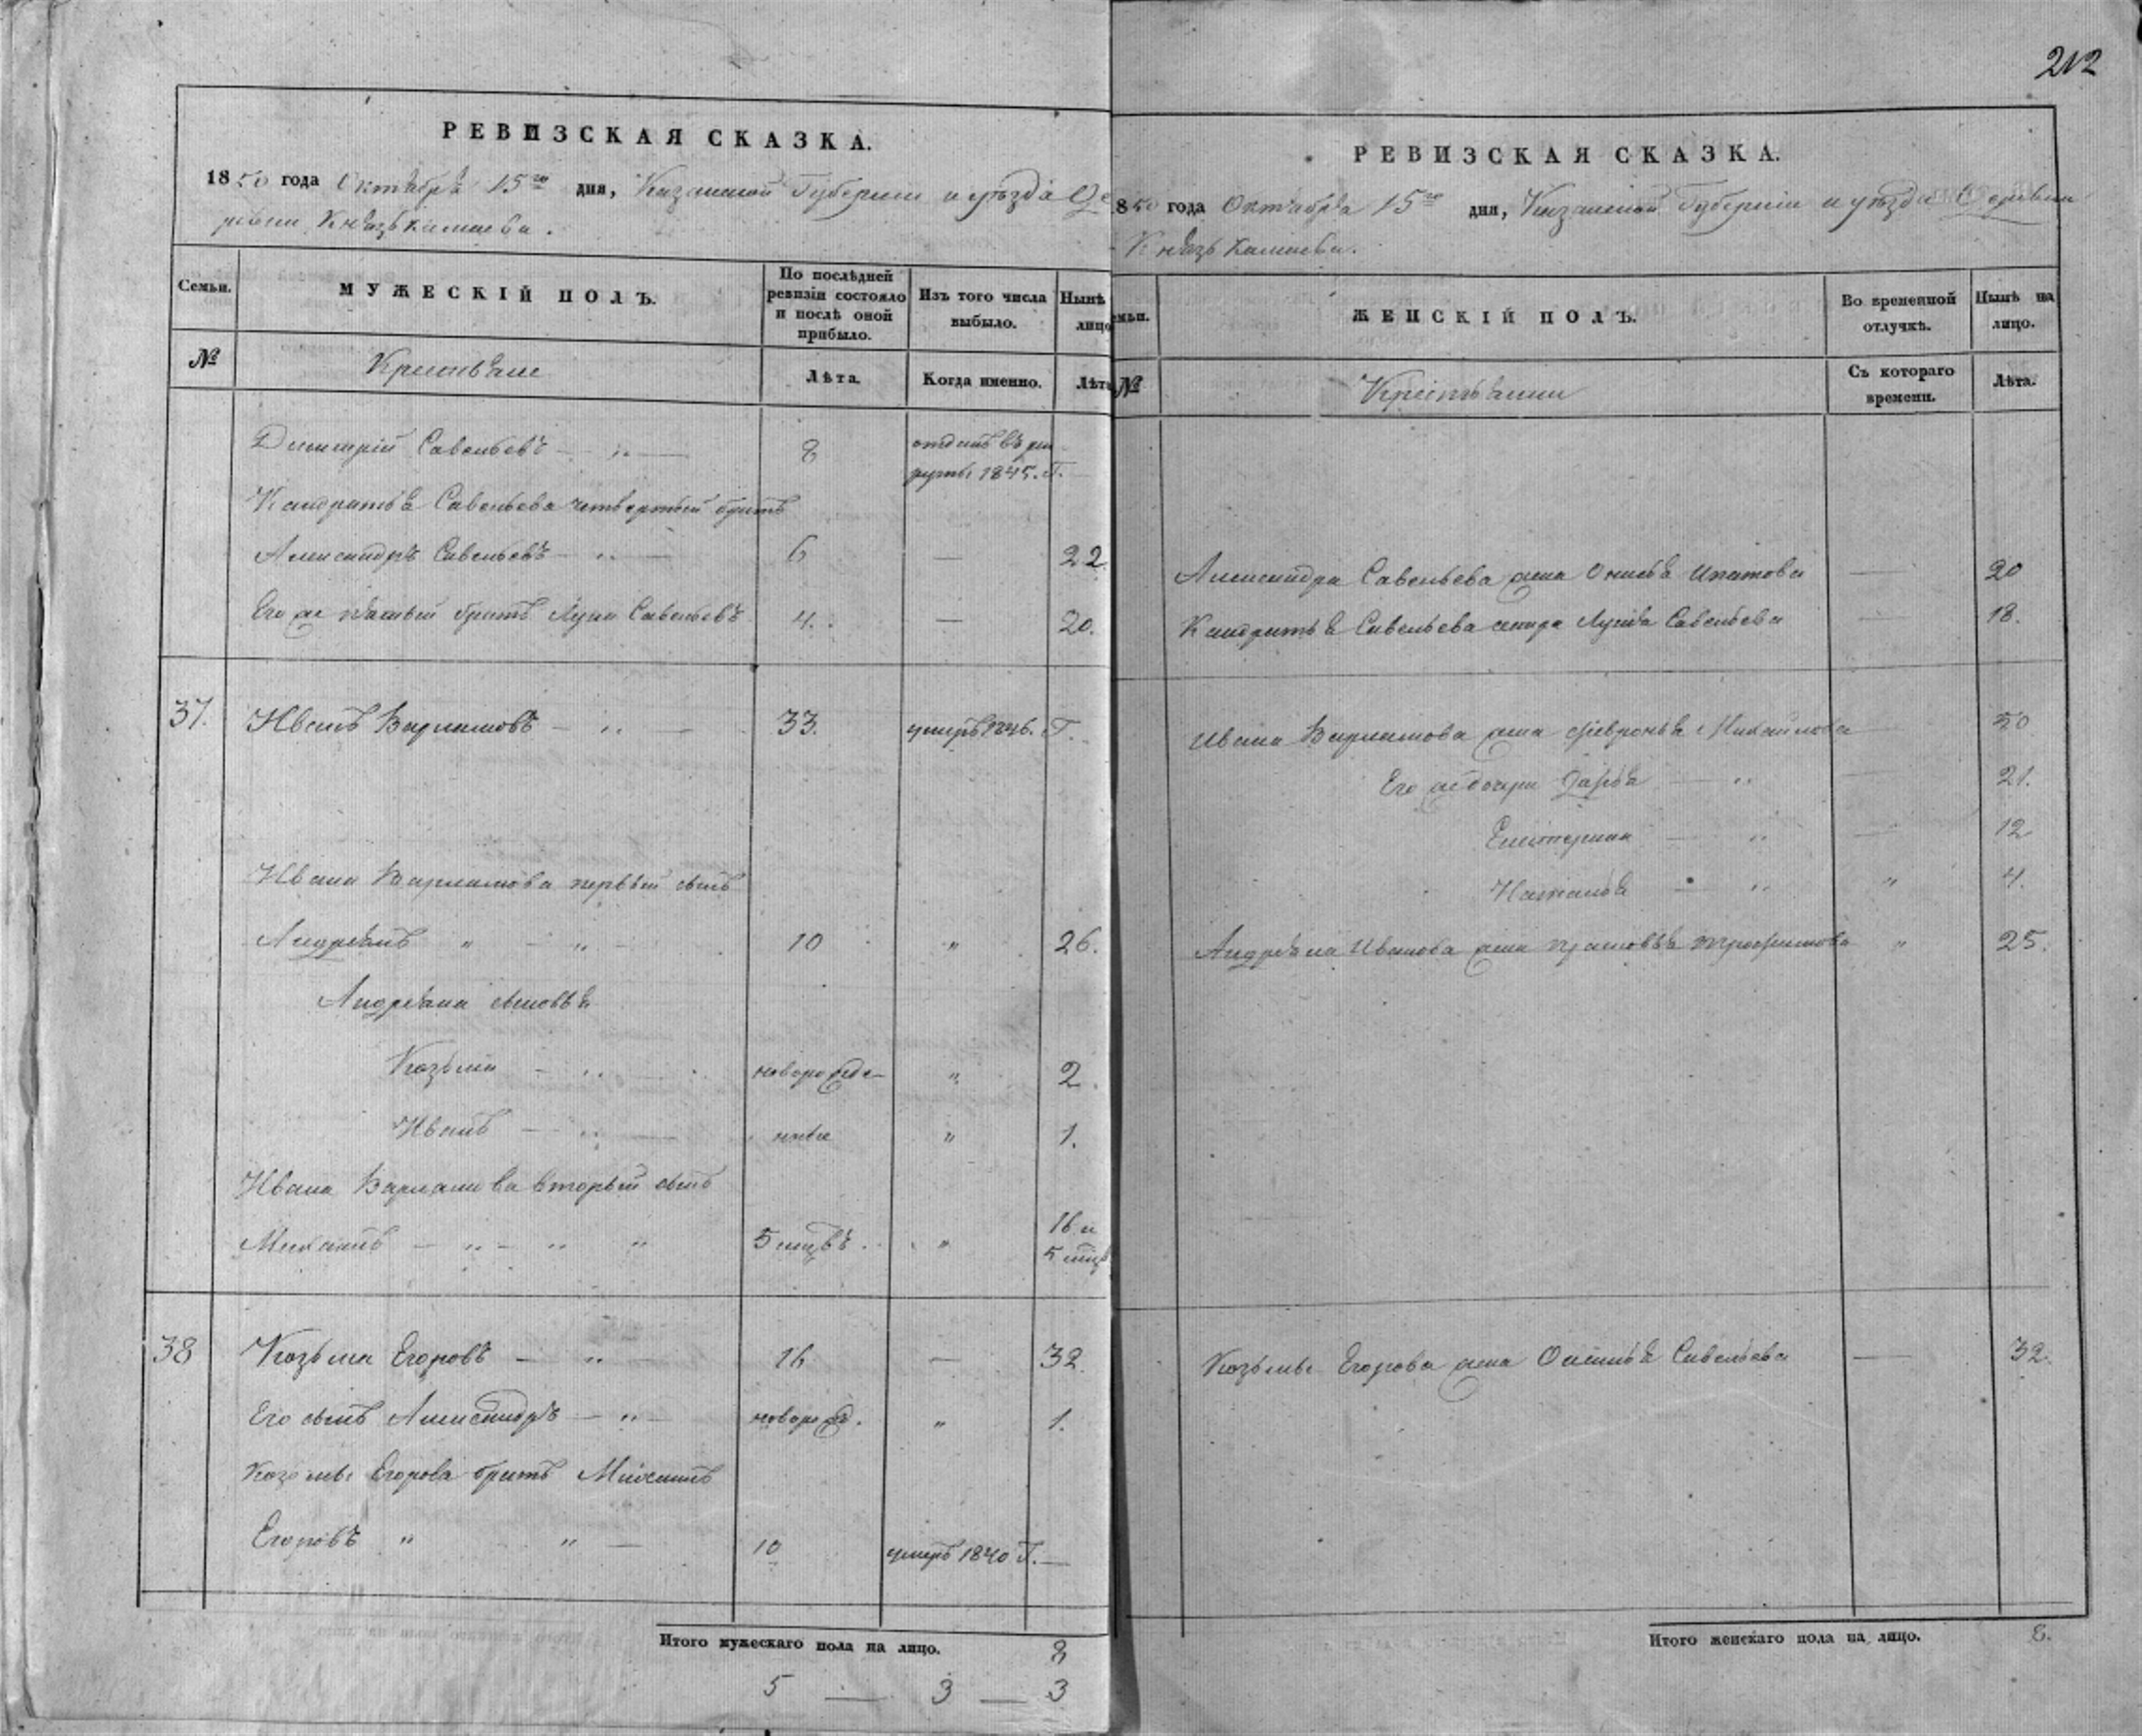 212
РЕВИЗСКАЯ СКАЗКА.
1850 года Октября 15го дня, Казанской Губернии и уѣзда Де
ревни Князь Камаева.
Семьи.
МУЖЕСКІЙ ПОЛЪ.
По послѣдней ревизіи состояло и послѣ оной прибыло.
Изъ того числа выбыло.
Нынѣ лицо
№
Крестьяне
Лѣта.
Когда именно.
Лѣта
Димитрій Савельевъ — „ — 8 отданъ въ ре
круты 1845. Г.
Кандратья Савельева четвертый братъ
Александръ Савельевъ — „ — 6 — 22.
Его же пятый братъ Лука Савельевъ 4. — 20.
37. Иванъ Варламовъ — „ — 33. умеръ 1846. Г.
Ивана Варламова первый сынъ
Андреянъ „ — „ — 10 „ 26.
Андреяна сыновья
Козьма — „ — новорожде— „ 2.
Иванъ — „ — ные „ 1.
Ивана Варламова вторый сынъ
5 мцвъ. „ 16 и
5 мцв
38 Козьма Егоровъ — „ — 16 — 32.
Его сынъ Александръ — „ — новорожд. „ 1.
Козьмы Егорова братъ
Егоровъ „ „ — 10 умеръ 1840 Г. —
Итого мужескаго пола на лицо. 8
5 — 3 — 3
РЕВИЗСКАЯ СКАЗКА.
850 года Октября 15го дня, Казанской Губерніи и уѣзда Деревни
Князь Камаева.
емьи.
ЖЕНСКІЙ ПОЛЪ.
Во временной отлучкѣ.
Нынѣ на лицо.
№
Крестьянки
Съ котораго времени.
Лѣта.
Александра Савельева жена Ипатова — 20
Кандратья Савельева Савельева — 18.
Ивана Варламова жена Февронья Михайлова — 50
Его же дочери Дарья — „ — 21.
Екатерина — „ — 12
Наталья — „ „ 4.
Андреяна Иванова жена Прасковья Трофимова „ 25.
Козьмы Егорова жена Савельева — 32.
Итого женскаго пола на лицо. 8.